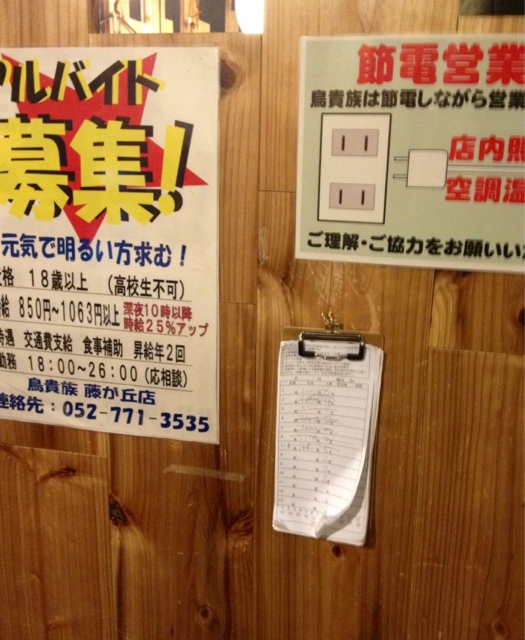 アルバイト
募集!
元気で明るい方求む!
格 18歳以上 (高校生不可)
給 850円~1063円以上 深夜10時以降
時給25%アップ
待遇 交通費支給 食事補助 昇給年2回
勤務 18:00~26:00 (応相談)
鳥貴族 藤が丘店
連絡先:052-771-3535
節電営業
鳥貴族は節電しながら営業
店内照
空調温
ご理解・ご協力をお願いいた